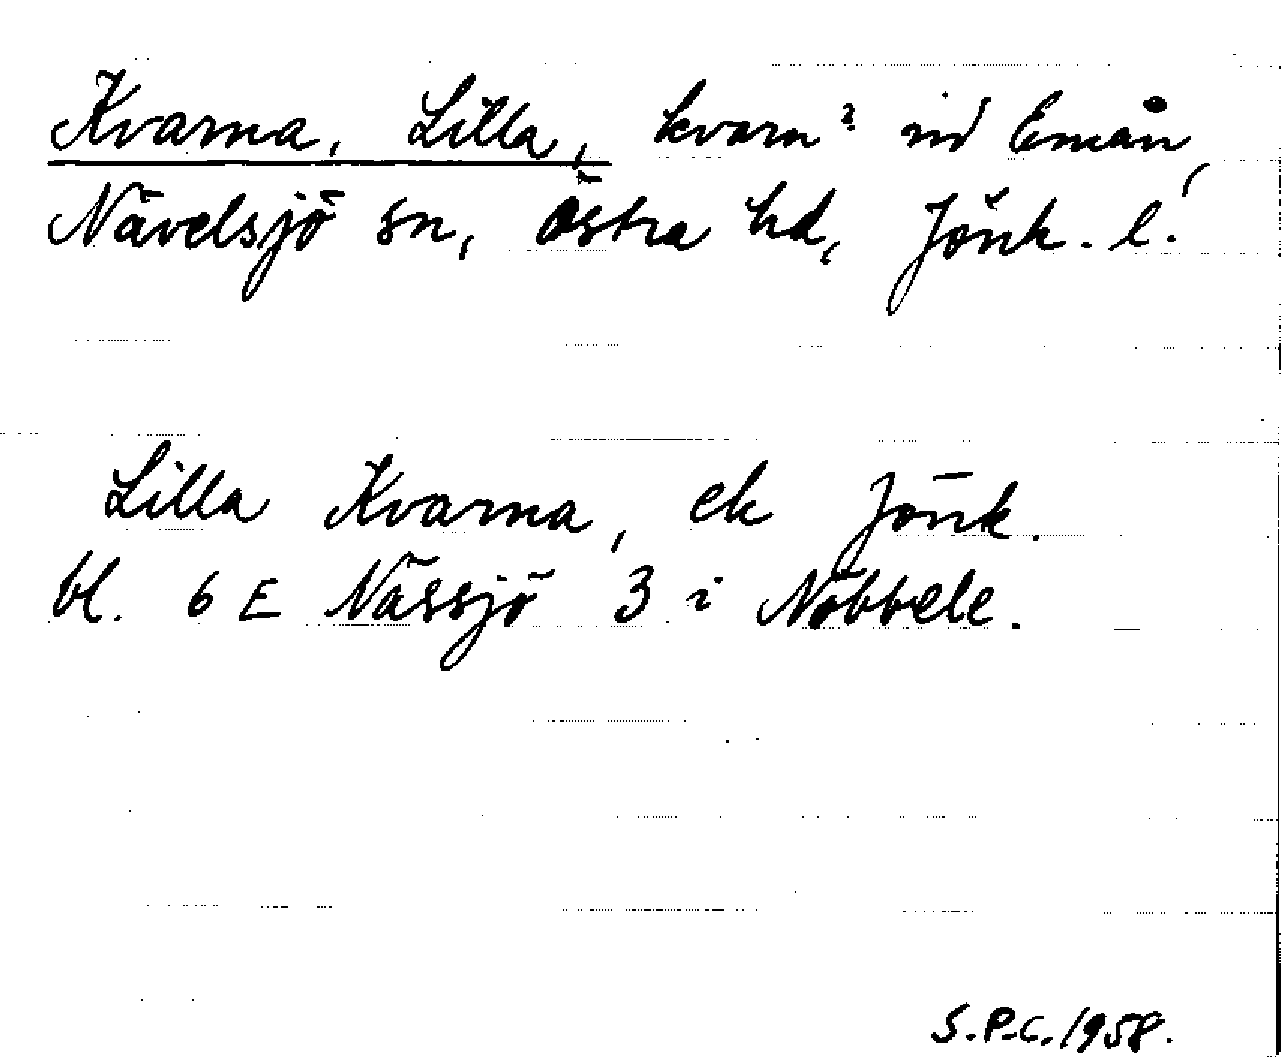 Kvarna, Lilla, kvarn? vid Emån,
Nävelsjö sn, Östra hd, Jönk. l.
Lilla Kvarna, ek Jönk.
bl. 6 E Nässjö 3 i Nöbbele.
S.P.C. 1958.